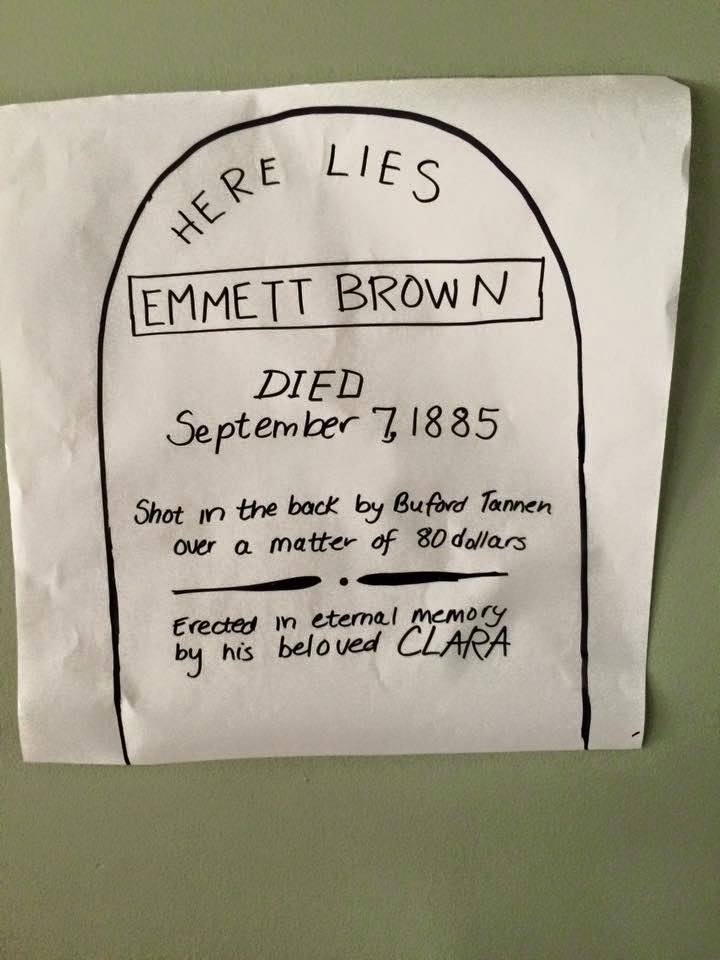 HERE LIES
EMMETT BROWN
DIED
September 7, 1885
Shot in the back by Buford Tannen
over a matter of 80 dollars
Erected in eternal memory
by his beloved CLARA